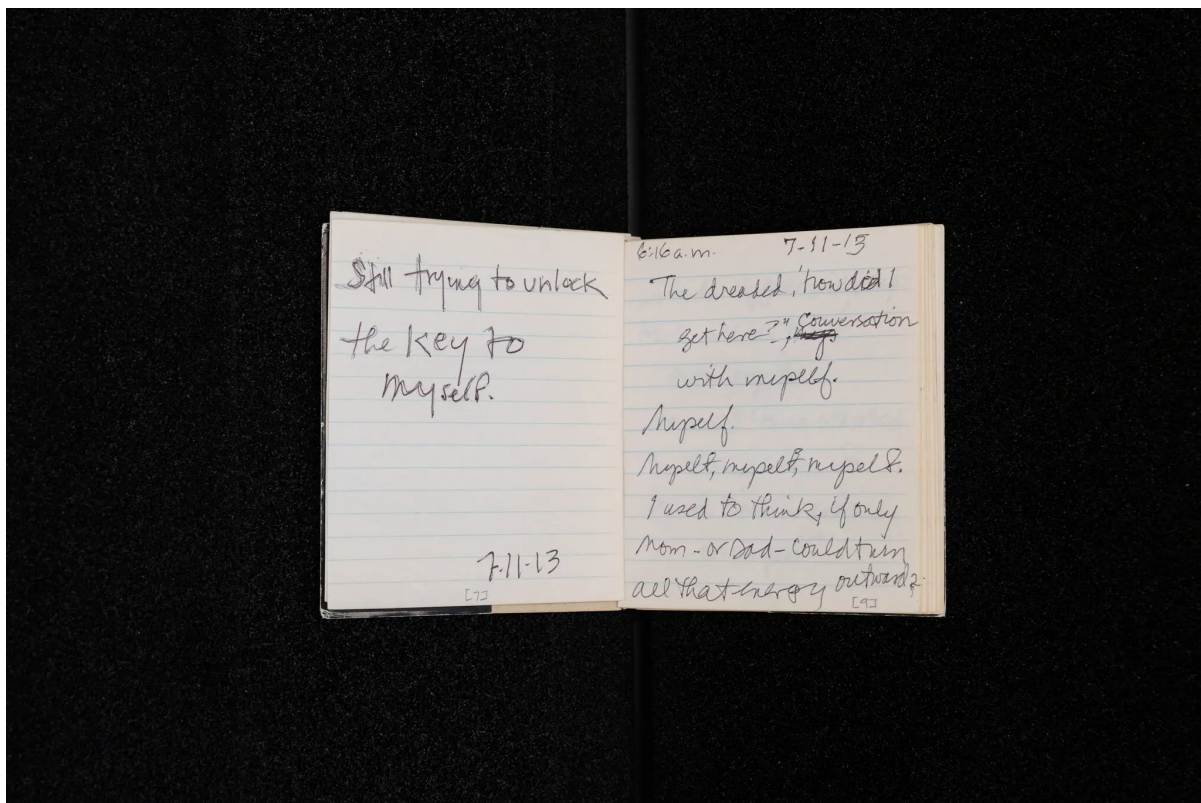 Still trying to unlock
the key to
myself.
7.11-13
[7]
6:16 a.m. 7-11-13
The dreaded, 'how did I
get here?", Conversation
with myself.
Myself.
Myself, myself, myself.
I used to think, if only
Mom - or Dad - could turn
all that energy outward,
[9]